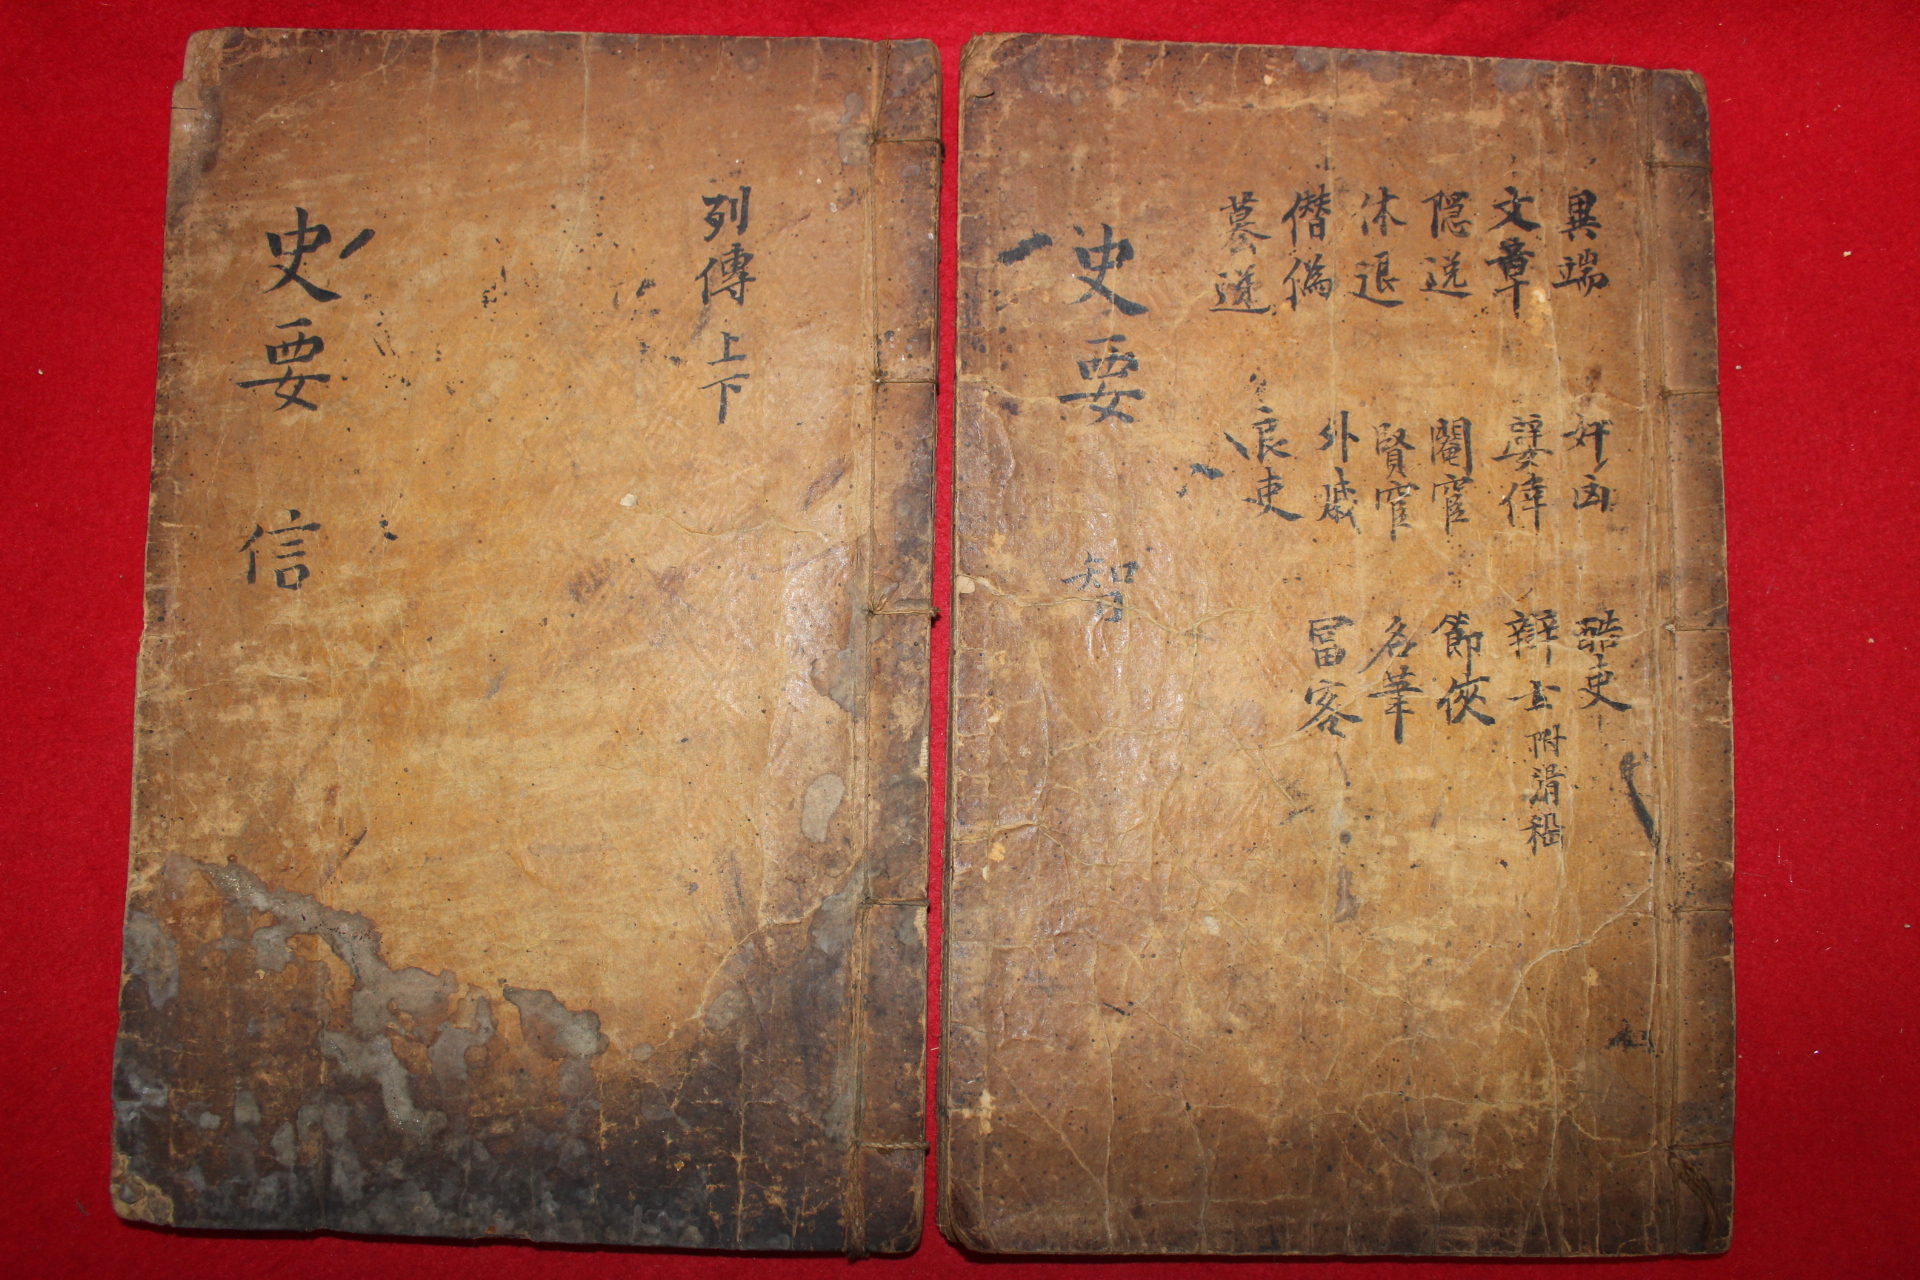 異端 奸凶 酷吏
文章 嬖倖 辯士 附滑稽
隠逸 閹宦 節俠
休退 賢宦 名筆
僭偽 外戚 冨客
良吏
史要 智
列傳 上下
史要 信